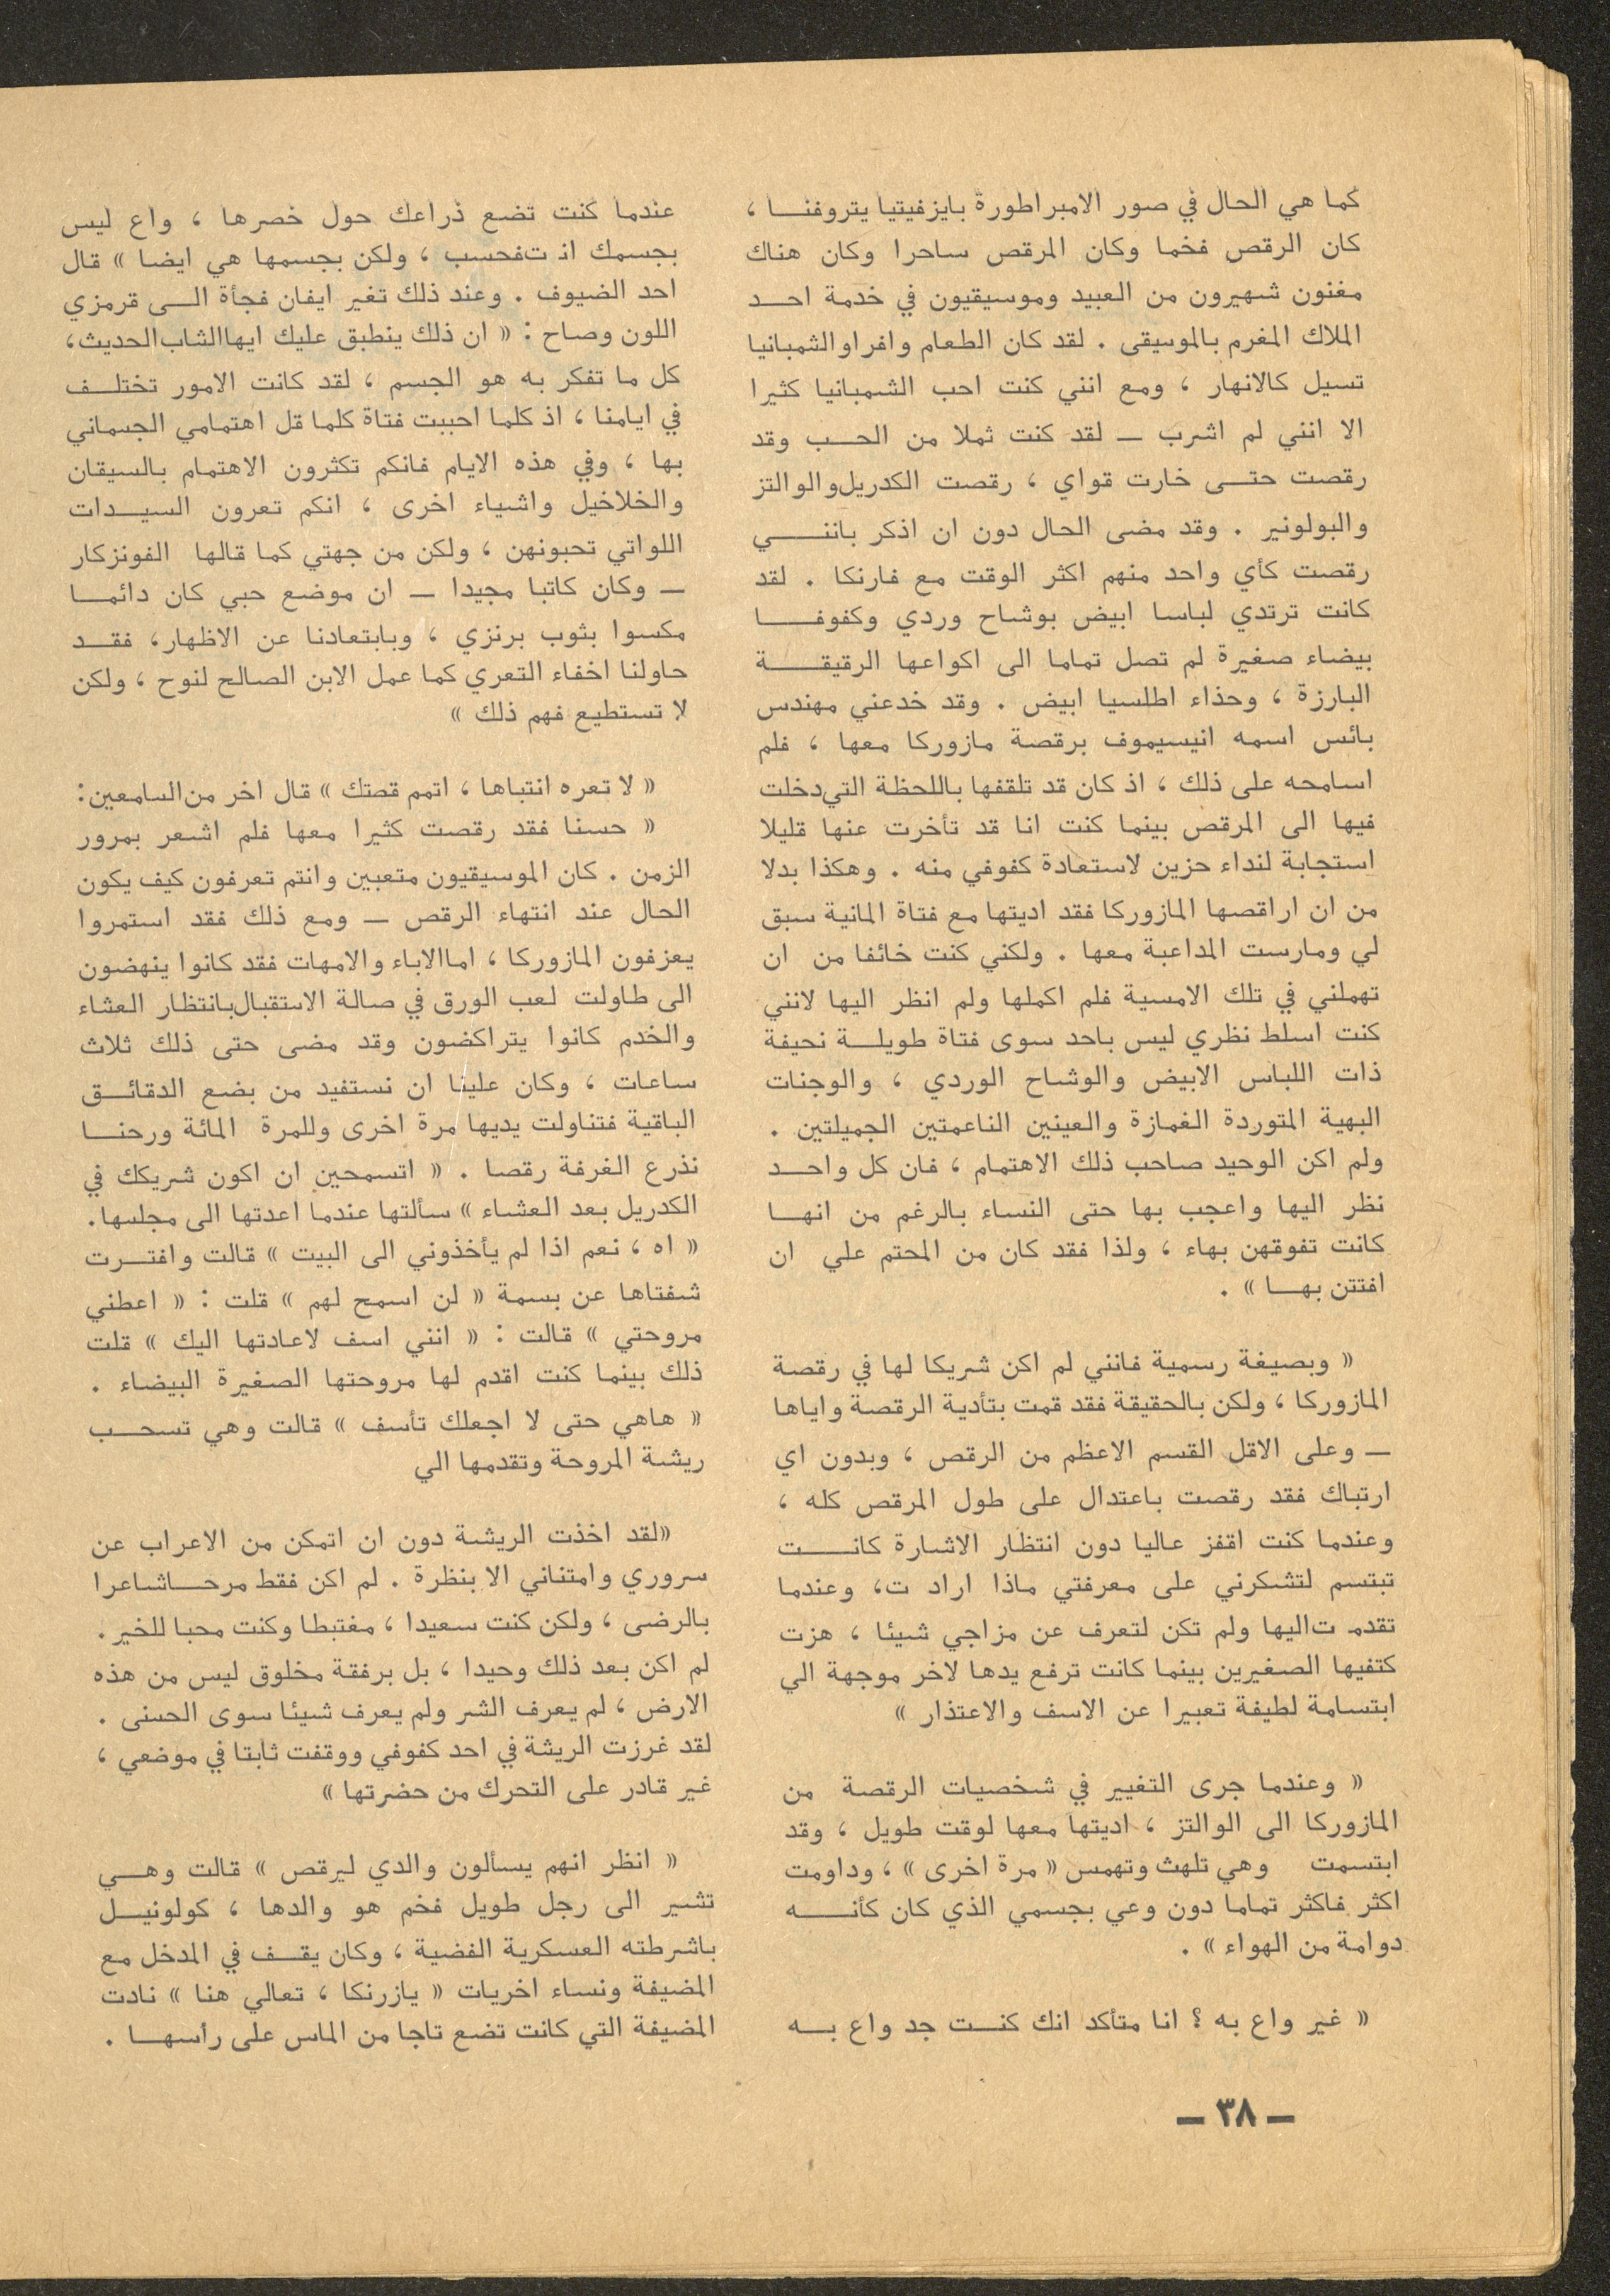 كما هي الحال في صور الامبراطورة بايزفيتيا يتروفنا ،
كان الرقص فخما وكان المرقص ساحرا وكان هناك
مغنون شهيرون من العبيد وموسيقيون في خدمة احد
الملاك المغرم بالموسيقى . لقد كان الطعام وافرا والشمبانيا
تسيل كالانهار ، ومع انني كنت احب الشمبانيا كثيرا
الا انني لم اشرب ــ لقد كنت ثملا من الحب وقد
رقصت حتى خارت قواي ، رقصت الكدريل والوالتز
والبولونير . وقد مضى الحال دون ان اذكر بانني
رقصت كأي واحد منهم اكثر الوقت مع فارنكا . لقد
كانت ترتدي لباسا ابيض بوشاح وردي وكفوفا
بيضاء صغيرة لم تصل تماما الى اكواعها الرقيقة
البارزة ، وحذاء اطلسيا ابيض . وقد خدعني مهندس
بائس اسمه انيسيموف برقصة مازوركا معها ، فلم
اسامحه على ذلك ، اذ كان قد تلقفها باللحظة التي دخلت
فيها الى المرقص بينما كنت انا قد تأخرت عنها قليلا
استجابة لنداء حزين لاستعادة كفوفي منه . وهكذا بدلا
من ان اراقصها المازوركا فقد اديتها مع فتاة المانية سبق
لي ومارست المداعبة معها . ولكني كنت خائفا من ان
تهملني في تلك الامسية فلم اكملها ولم انظر اليها لانني
كنت اسلط نظري ليس باحد سوى فتاة طويلة نحيفة
ذات اللباس الابيض والوشاح الوردي ، والوجنات
البهية المتوردة الغمازة والعينين الناعمتين الجميلتين .
ولم اكن الوحيد صاحب ذلك الاهتمام ، فان كل واحد
نظر اليها واعجب بها حتى النساء بالرغم من انها
كانت تفوقهن بهاء ، ولذا فقد كان من المحتم علي ان
افتتن بها » .
« وبصيغة رسمية فانني لم اكن شريكا لها في رقصة
المازوركا ، ولكن بالحقيقة فقد قمت بتأدية الرقصة واياها
ــ وعلى الاقل القسم الاعظم من الرقص ، وبدون اي
ارتباك فقد رقصت باعتدال على طول المرقص كله ،
وعندما كنت اقفز عاليا دون انتظار الاشارة كانت
تبتسم لتشكرني على معرفتي ماذا اراد ت، وعندما
تقدم تاليها ولم تكن لتعرف عن مزاجي شيئا ، هزت
كتفيها الصغيرين بينما كانت ترفع يدها لاخر موجهة الي
ابتسامة لطيفة تعبيرا عن الاسف والاعتذار »
« وعندما جرى التغيير في شخصيات الرقصة من
المازوركا الى الوالتز ، اديتها معها لوقت طويل ، وقد
ابتسمت وهي تلهث وتهمس « مرة اخرى » ، وداومت
اكثر فاكثر تماما دون وعي بجسمي الذي كان كأنه
دوامة من الهواء » .
« غير واع به ؟ انا متأكد انك كنت جد واع به
عندما كنت تضع ذراعك حول خصرها ، واع ليس
بجسمك اذ تفحسب ، ولكن بجسمها هي ايضا » قال
احد الضيوف . وعند ذلك تغير ايفان فجأة الى قرمزي
اللون وصاح : « ان ذلك ينطبق عليك ايها الشاب الحديث،
كل ما تفكر به هو الجسم ، لقد كانت الامور تختلف
في ايامنا ، اذ كلما احببت فتاة كلما قل اهتمامي الجسماني
بها ، وفي هذه الايام فانكم تكثرون الاهتمام بالسيقان
والخلاخيل واشياء اخرى ، انكم تعرون السيدات
اللواتي تحبونهن ، ولكن من جهتي كما قالها الفونزكار
ــ وكان كاتبا مجيدا ــ ان موضع حبي كان دائما
مكسوا بثوب برنزي ، وبابتعادنا عن الاظهار، فقد
حاولنا اخفاء التعري كما عمل الابن الصالح لنوح ، ولكن
لا تستطيع فهم ذلك »
« لا تعره انتباها ، اتمم قصتك » قال اخر من السامعين:
« حسنا فقد رقصت كثيرا معها فلم اشعر بمرور
الزمن . كان الموسيقيون متعبين وانتم تعرفون كيف يكون
الحال عند انتهاء الرقص ــ ومع ذلك فقد استمروا
يعزفون المازوركا ، اما الاباء والامهات فقد كانوا ينهضون
الى طاولت لعب الورق في صالة الاستقبال بانتظار العشاء
والخدم كانوا يتراكضون وقد مضى حتى ذلك ثلاث
ساعات ، وكان علينا ان نستفيد من بضع الدقائق
الباقية فتناولت يديها مرة اخرى وللمرة المائة ورحنا
نذرع الغرفة رقصا . « اتسمحين ان اكون شريكك في
الكدريل بعد العشاء » سألتها عندما اعدتها الى مجلسها.
« اه ، نعم اذا لم يأخذوني الى البيت » قالت وافترت
شفتاها عن بسمة « لن اسمح لهم » قلت : « اعطني
مروحتي » قالت : « انني اسف لاعادتها اليك » قلت
ذلك بينما كنت اقدم لها مروحتها الصغيرة البيضاء .
« هاهي حتى لا اجعلك تأسف » قالت وهي تسحب
ريشة المروحة وتقدمها الي
«لقد اخذت الريشة دون ان اتمكن من الاعراب عن
سروري وامتناني الا بنظرة . لم اكن فقط مرحا شاعرا
بالرضى ، ولكن كنت سعيدا ، مغتبطا وكنت محبا للخير .
لم اكن بعد ذلك وحيدا ، بل برفقة مخلوق ليس من هذه
الارض ، لم يعرف الشر ولم يعرف شيئا سوى الحسنى .
لقد غرزت الريشة في احد كفوفي ووقفت ثابتا في موضعي ،
غير قادر على التحرك من حضرتها »
« انظر انهم يسألون والدي ليرقص » قالت وهي
تشير الى رجل طويل فخم هو والدها ، كولونيل
باشرطته العسكرية الفضية ، وكان يقف في المدخل مع
المضيفة ونساء اخريات « يازرنكا ، تعالي هنا » نادت
المضيفة التي كانت تضع تاجا من الماس على رأسها .
ــ ٣٨ ــ